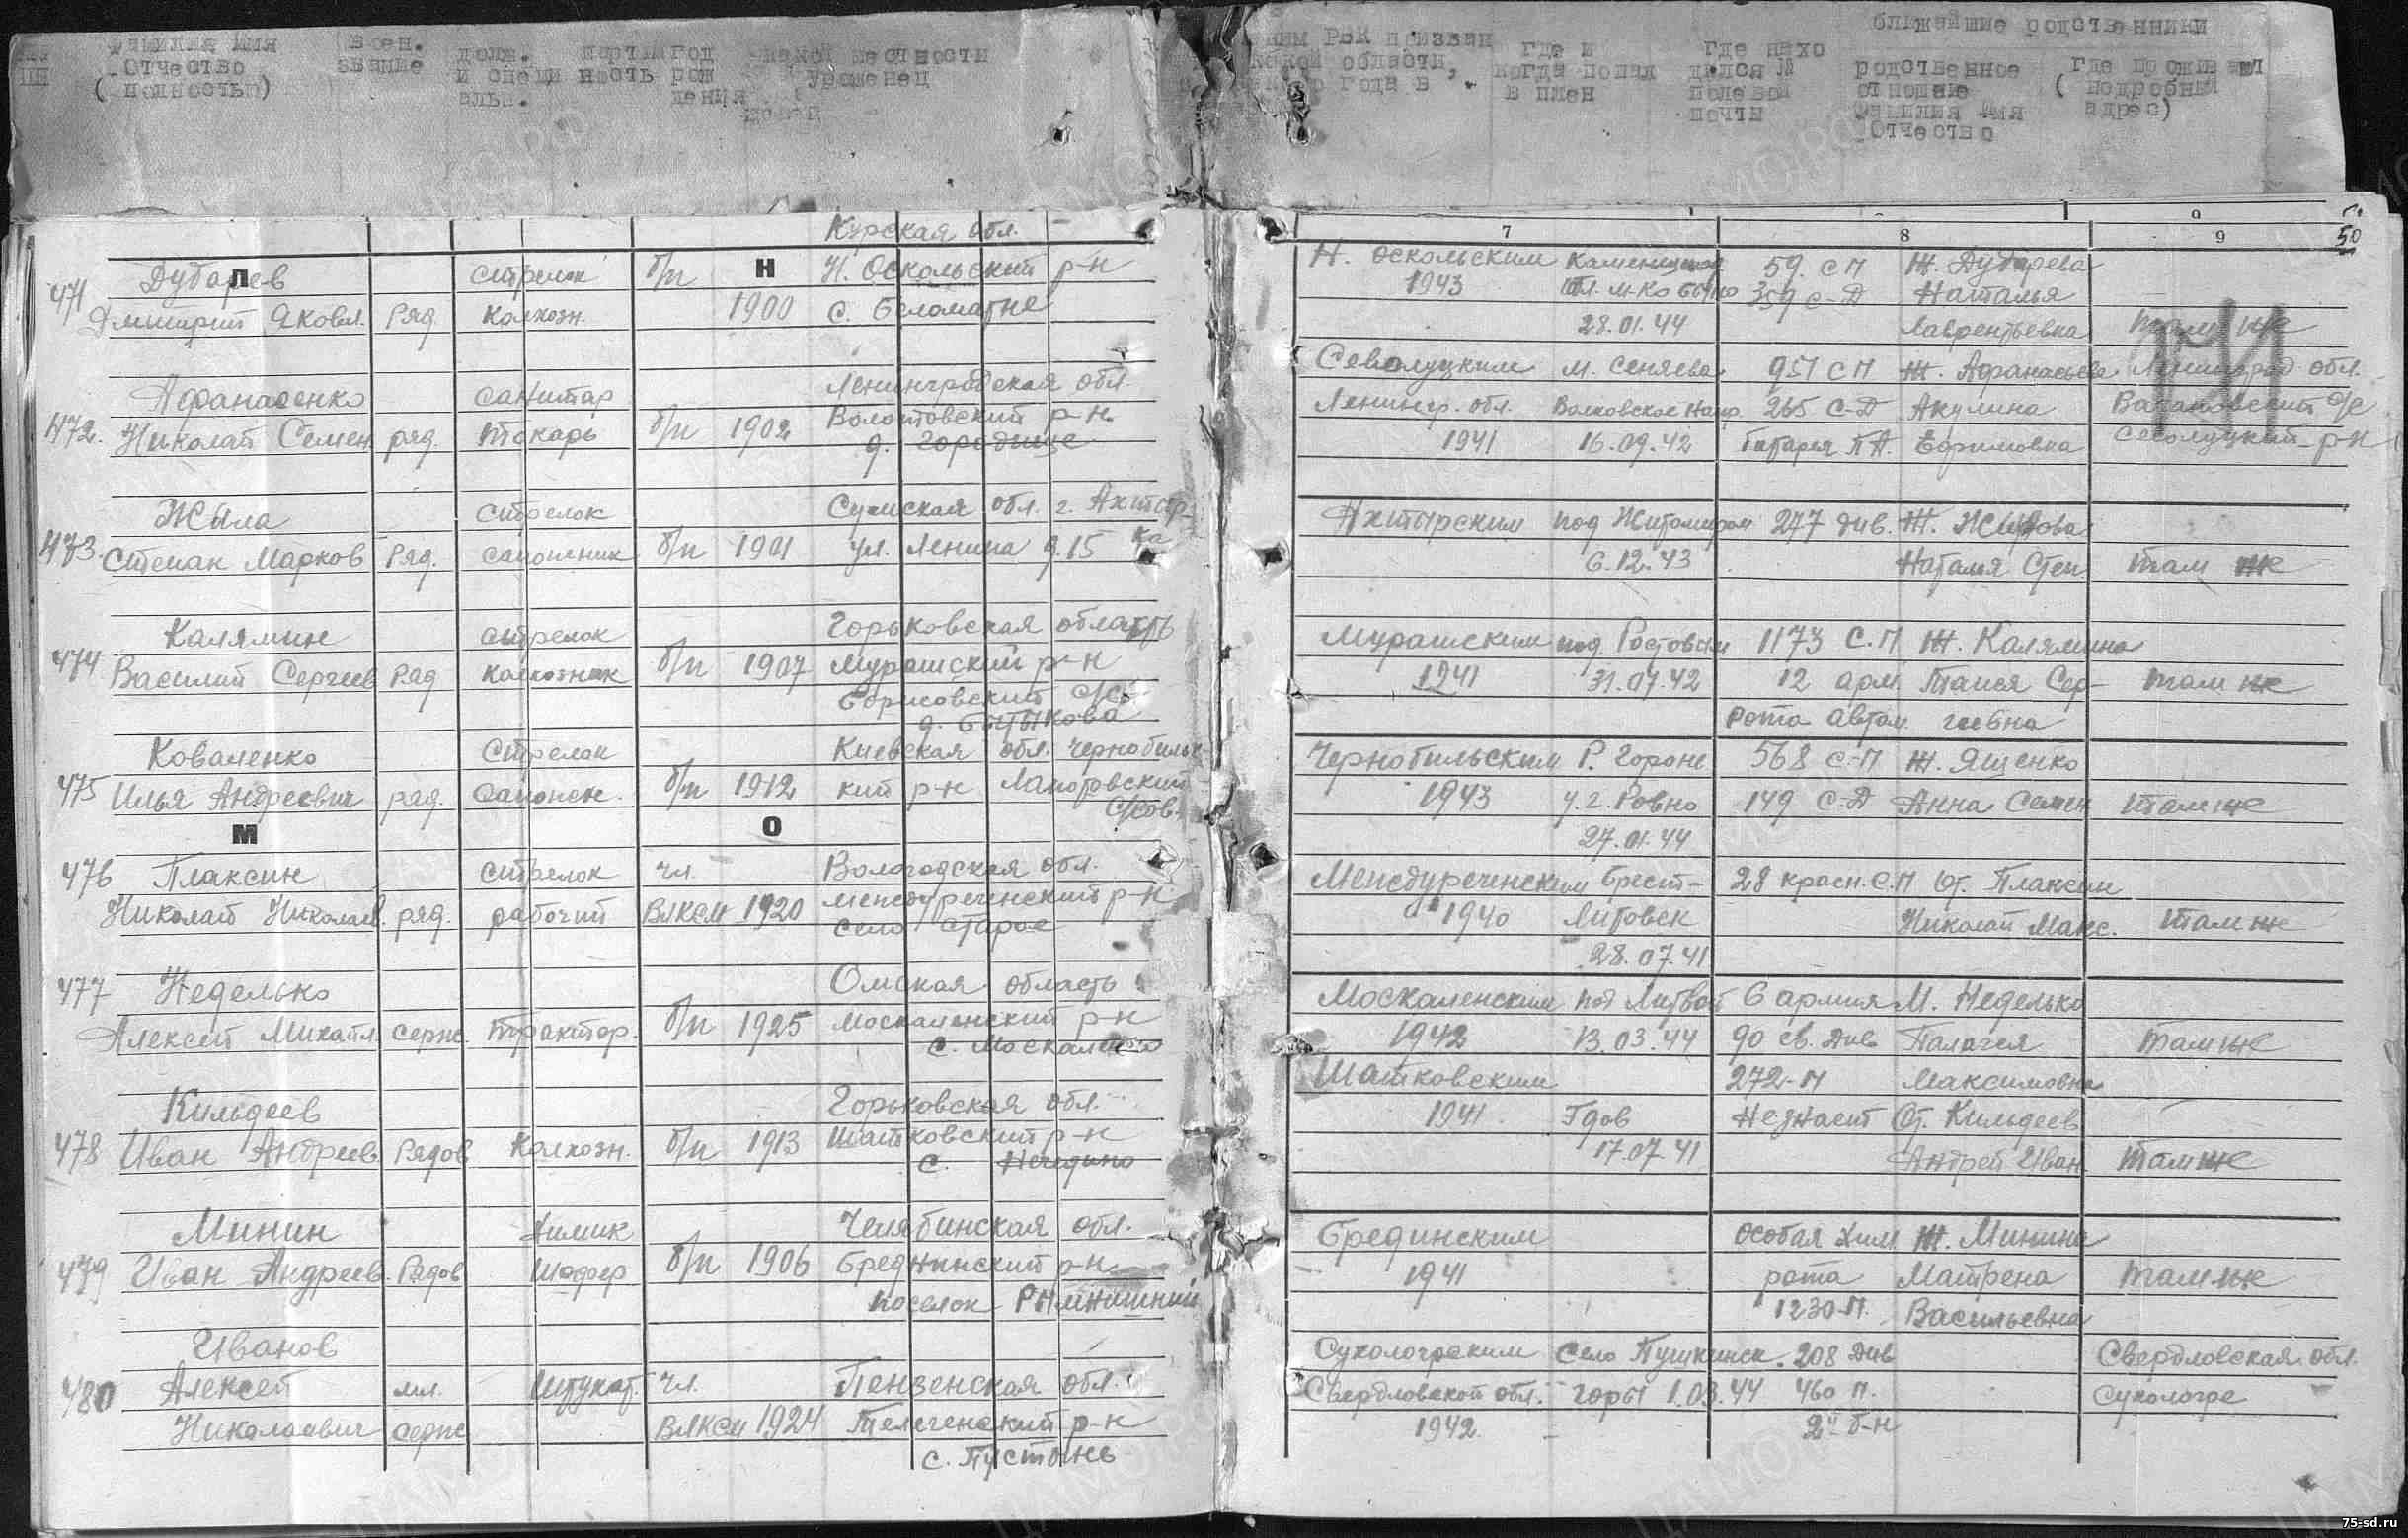 фамилия имя
Отчество
(полностью)
воен.
звание
долж.
и специ
альн.
партий
ность
год
рож
дения
какой местности
уроженец
РВК призван
какой области,
года в
где и
когда попал
в плен
Где нахо
дился №
полевой
почты
ближайшие родственники
родственное
отношение
фамилия имя
Отчество
где проживал
(подробный
адрес)
7 8 9
50
Курская обл.
471 Дубарев стрелок б/п Н. Оскольский р-н
Дмитрий Яковл. Ряд. Колхозн. 1900 с.
Н. Оскольским 59 СП Ж. Дубарева
1943 359 С-Д Наталья
28.01.44 Лаврентьевна там же
472. Афанасенко санитар Ленинградская обл.
Николай Семен. ряд. токарь б/п 1902 Волотовский р-н
д. Городище
м. Сеняева 951 СП Ж. Афанасьева Ленинград. обл.
Ленингр. обл. Волховское Напр. 265 С-Д Акулина
1941 16.09.42 Батарея ПА. Ефимовна р-н
473. Жила стрелок Сумская обл. г. Ахтыр-
Степан Марков Ряд. сапожник б/п 1901 ул. Ленина д. 15 ка
Ахтырским под Житомиром 277 див. Ж.
6.12.43 Наталия Степ. там же
474 Калямин стрелок Горьковская область
Василий Сергеев Ряд колхозник б/п 1907 Мурашский р-н
Борисовский С/С
д.
Мурашским под Ростовом 1173 С.П Ж. Калямина
1941 31.07.42 12 арм. Таися Сер-
там же
рота автом. геевна
475 Коваленко стрелок Киевская обл. Чернобыльс-
Илья Андреевич ряд. Сапожн. б/п 1912 кий р-н
С/сов.
Чернобильским Р. Горонь 568 С-П Ж. Ященко
1943 у. г. Ровно 149 С-Д Анна Семен. там же
27.01.44
Л Н
М О
476 Плаксин стрелок чл. Вологодская обл.
Николай Николаев. ряд. рабочий ВЛКСМ 1920 Междуреченский р-н
село Старое
Междуреченским Брест- 28 красн. С.П От. Плаксин
1940 Литовск Николай Макс. там же
28.07.41
477 Неделько Омская область
Алексей Михайл. серж. Трактор. б/п 1925 Москаленский р-н
с.
Москаленским под Литвой 6 армия М. Неделько
1942 13.03.44 90 св. Див Палагея там же
272-П Максимовна
478 Кильдеев Горьковская обл.
Иван Андреев. Рядов Колхозн. б/п 1913 Шатковский р-н
с.
Шатковским
1941 Гдов Незнает От. Кильдеев
17.07.41 Андрей Иван. там же
479 Минин Химик Челябинская обл.
Иван Андреев. Рядов Шофер б/п 1906 Брединский р-н
поселок
Брединским особая хим. Ж. Минина
1941 рота Матрена там же
1230 П. Васильевна
480 Иванов
Алексей мл. Штукат. чл. Пензенская обл.
Николаевич серж ВЛКСМ 1924 Телегенский р-н
с. Пустынь
Сухологским Село Пушкинск. 208 див Свердловская обл.
Свердловской обл. горы 1.03.44 460 П.
1942 2й б-н
75-sd.ru